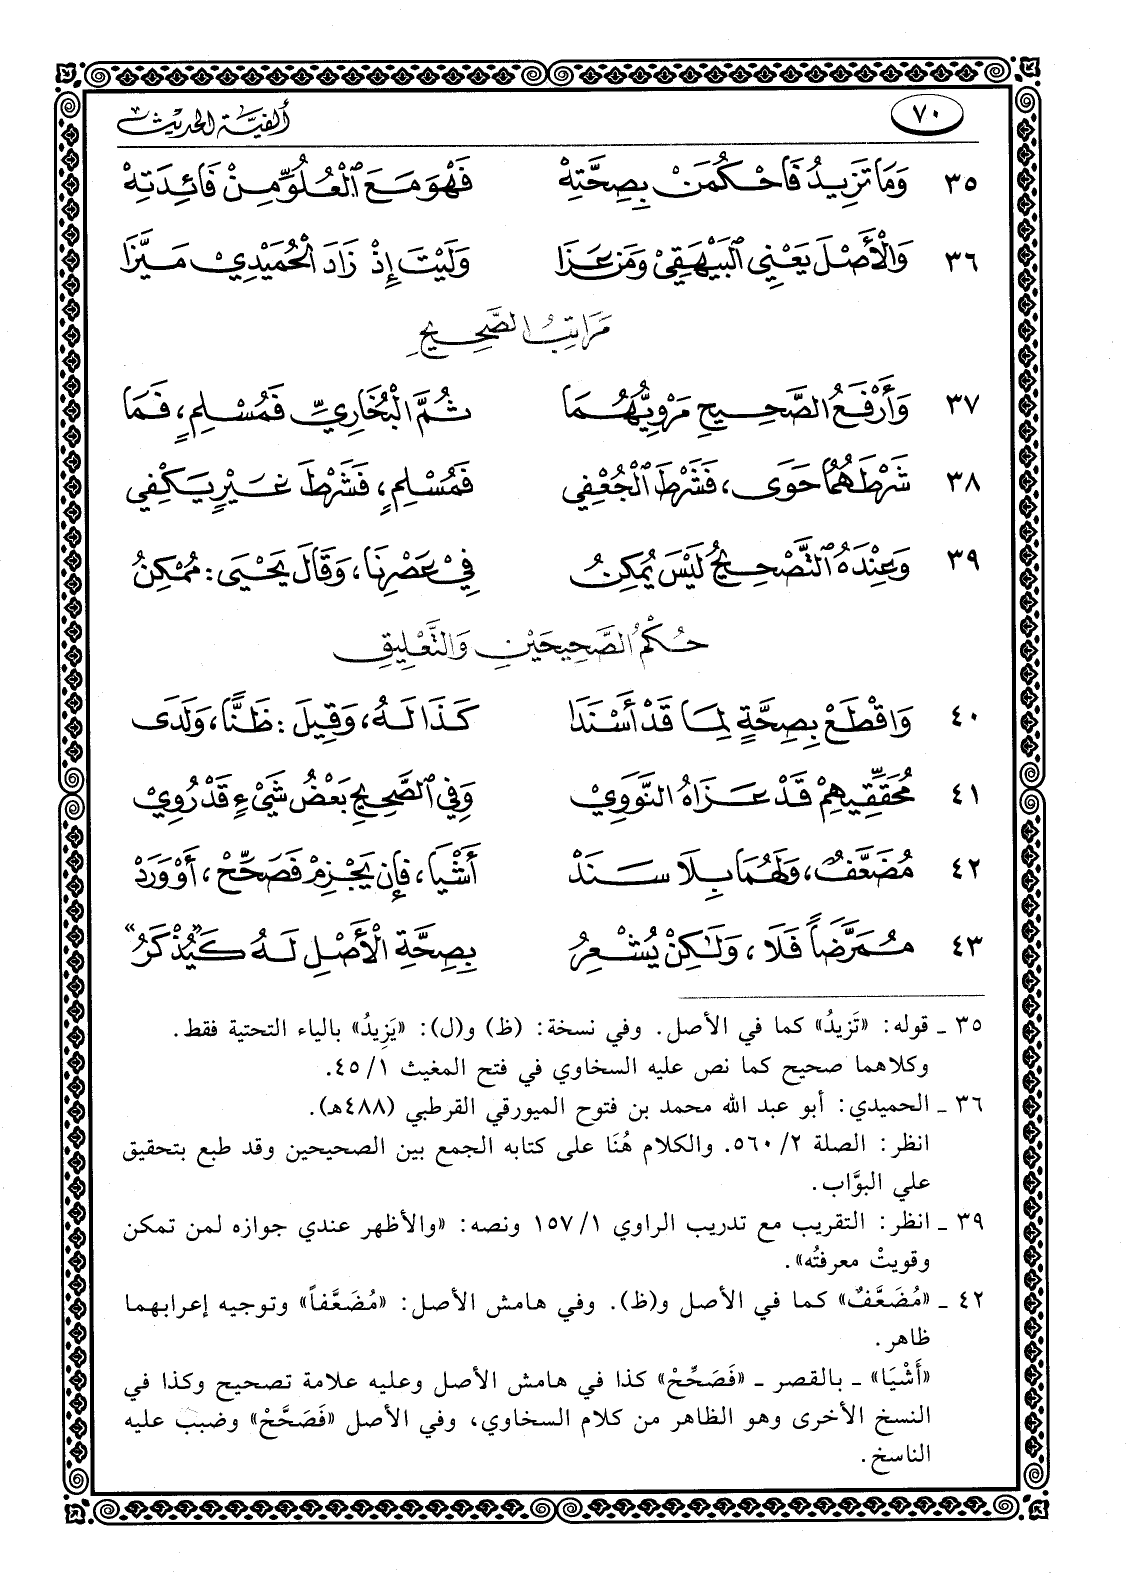 ٧٠
ألفية الحديث
٣٥ وَمَا تَزِيدُ فَاحْكُمَنْ بِصِحَّتِهْ فَهْوَ مَعَ الْعُلُوِّ مِنْ فَائِدَتِهْ
٣٦ وَالْأَصْلَ يَعْنِي الْبَيْهَقِيْ وَمَنْ عَزَا وَلَيْتَ إِذْ زَادَ الْحُمَيْدِيْ مَيَّزَا
مَرَاتِبُ الصَّحِيحِ
٣٧ وَأَرْفَعُ الصَّحِيحِ مَرْوِيُّهُمَا ثُمَّ الْبُخَارِيِّ فَمُسْلِمٍ، فَمَا
٣٨ شَرْطَهُمَا حَوَى، فَشَرْطَ الْجُعْفِي فَمُسْلِمٍ، فَشَرْطَ غَيْرٍ يَكْفِي
٣٩ وَعِنْدَهُ التَّصْحِيحُ لَيْسَ يُمْكِنُ فِيْ عَصْرِنَا، وَقَالَ يَحْيَى: مُمْكِنُ
حُكْمُ الصَّحِيحَيْنِ وَالتَّعْلِيقِ
٤٠ وَاقْطَعْ بِصِحَّةٍ لِمَا قَدْ أَسْنَدَا كَذَا لَهُ، وَقِيلَ: ظَنًّا، وَلَدَى
٤١ مُحَقِّقِيهِمْ قَدْ عَزَاهُ النَّوَوِيْ وَفِي الصَّحِيحِ بَعْضُ شَيْءٍ قَدْ رُوِيْ
٤٢ مُضَعَّفٌ، وَلَهُمَا بِلَا سَنَدْ أَشْيَا، فَإِن يَجْزِمْ فَصَحِّحْ، أَوْ وَرَدْ
٤٣ مُمَرَّضاً فَلَا، وَلَكِنْ يُشْعِرُ بِصِحَّةِ الْأَصْلِ لَهُ كَـ«يُذْكَرُ»
٣٥ ـ قوله: «تَزِيدُ» كما في الأصل. وفي نسخة: (ظ) و(ل): «يَزِيدُ» بالياء التحتية فقط.
وكلاهما صحيح كما نص عليه السخاوي في فتح المغيث ١/ ٤٥.
٣٦ ـ الحميدي: أبو عبد الله محمد بن فتوح الميورقي القرطبي (٤٨٨هـ).
انظر: الصلة ٢/ ٥٦٠. والكلام هُنَا على كتابه الجمع بين الصحيحين وقد طبع بتحقيق
علي البوَّاب.
٣٩ ـ انظر: التقريب مع تدريب الراوي ١/ ١٥٧ ونصه: «والأظهر عندي جوازه لمن تمكن
وقويتْ معرفتُه».
٤٢ ـ «مُضَعَّفٌ» كما في الأصل و(ظ). وفي هامش الأصل: «مُضَعَّفاً» وتوجيه إعرابهما
ظاهر.
«أَشْيَا» ـ بالقصر ـ «فَصَحِّحْ» كذا في هامش الأصل وعليه علامة تصحيح وكذا في
النسخ الأخرى وهو الظاهر من كلام السخاوي، وفي الأصل «فَصَحَّحْ» وضبب عليه
الناسخ.